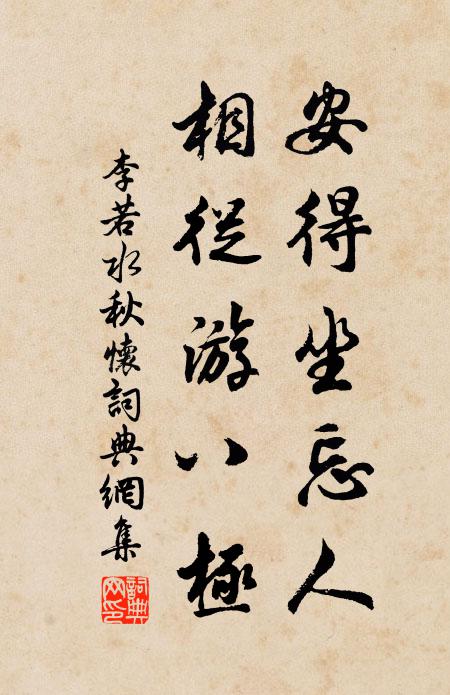 安得坐忘人
相從游八極
李若水秋懷詞典網集
詞典
网印